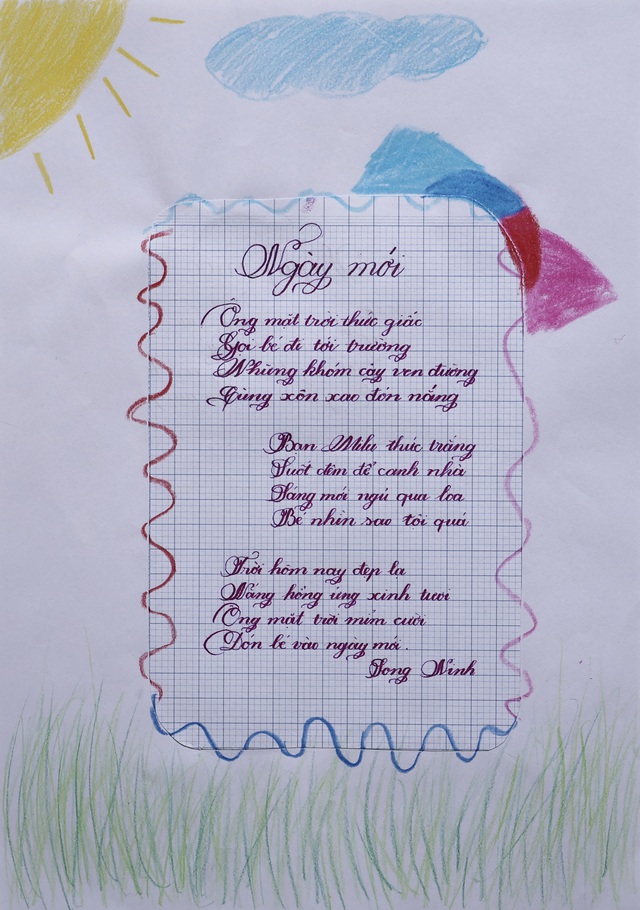 Ngày mới
Ông mặt trời thức giấc
Gọi bé đi tới trường
Những khóm cây ven đường
Cùng xôn xao đón nắng
Bạn Milu thức trắng
Suốt đêm để canh nhà
Sáng mới ngủ qua loa
Bé nhìn sao tội quá
Trời hôm nay đẹp lạ
Nắng hồng ửng xinh tươi
Ông mặt trời mỉm cười
Đón bé vào ngày mới.
Song Ninh